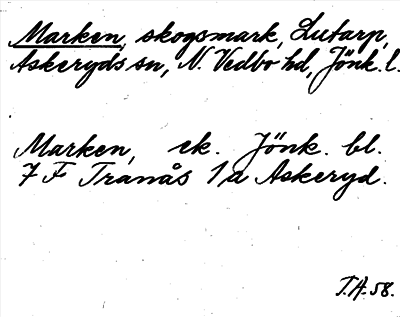 Marken, skogsmark, Lutarp,
Askeryds sn, N. Vedbo hd, Jönk. l.
Marken, ek. Jönk. bl.
7 F Tranås 1 a Askeryd.
T.A. 58.